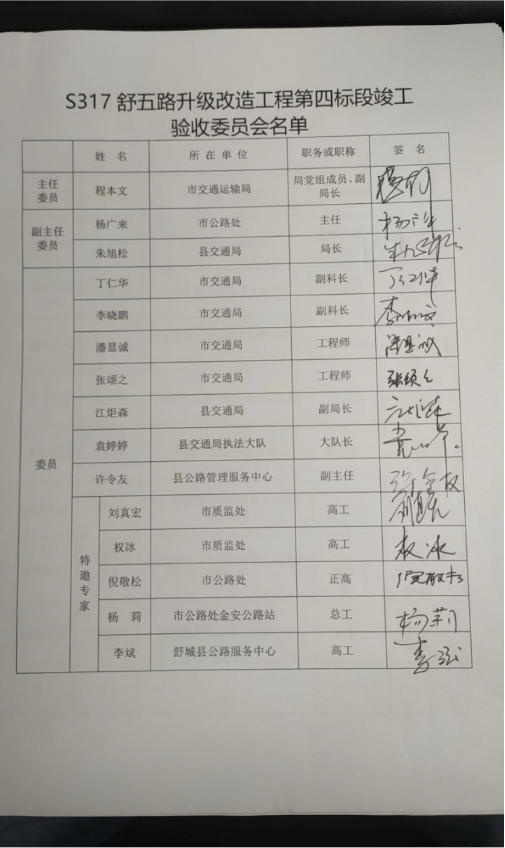 S317 舒五路升级改造工程第四标段竣工
验收委员会名单
姓 名 所 在 单 位 职务或职称 签 名
主任
委员
程本文 市交通运输局 局党组成员、副
局长
副主任
委员
杨广来 市公路处 主任 杨广来
朱旭松 县交通局 局长 朱旭松
委员
丁仁华 市交通局 副科长 丁仁华
李晓鹏 市交通局 副科长
潘显诚 市交通局 工程师 潘显诚
张颂之 市交通局 工程师 张颂之
江炬森 县交通局 副局长
袁婷婷 县交通局执法大队 大队长
许令友 县公路管理服务中心 副主任 许令友
特
邀
专
家
刘真宏 市质监处 高工
权冰 市质监处 高工 权冰
倪敬松 市公路处 正高 倪敬松
杨 莉 市公路处金安公路站 总工 杨莉
李斌 舒城县公路服务中心 高工 李斌